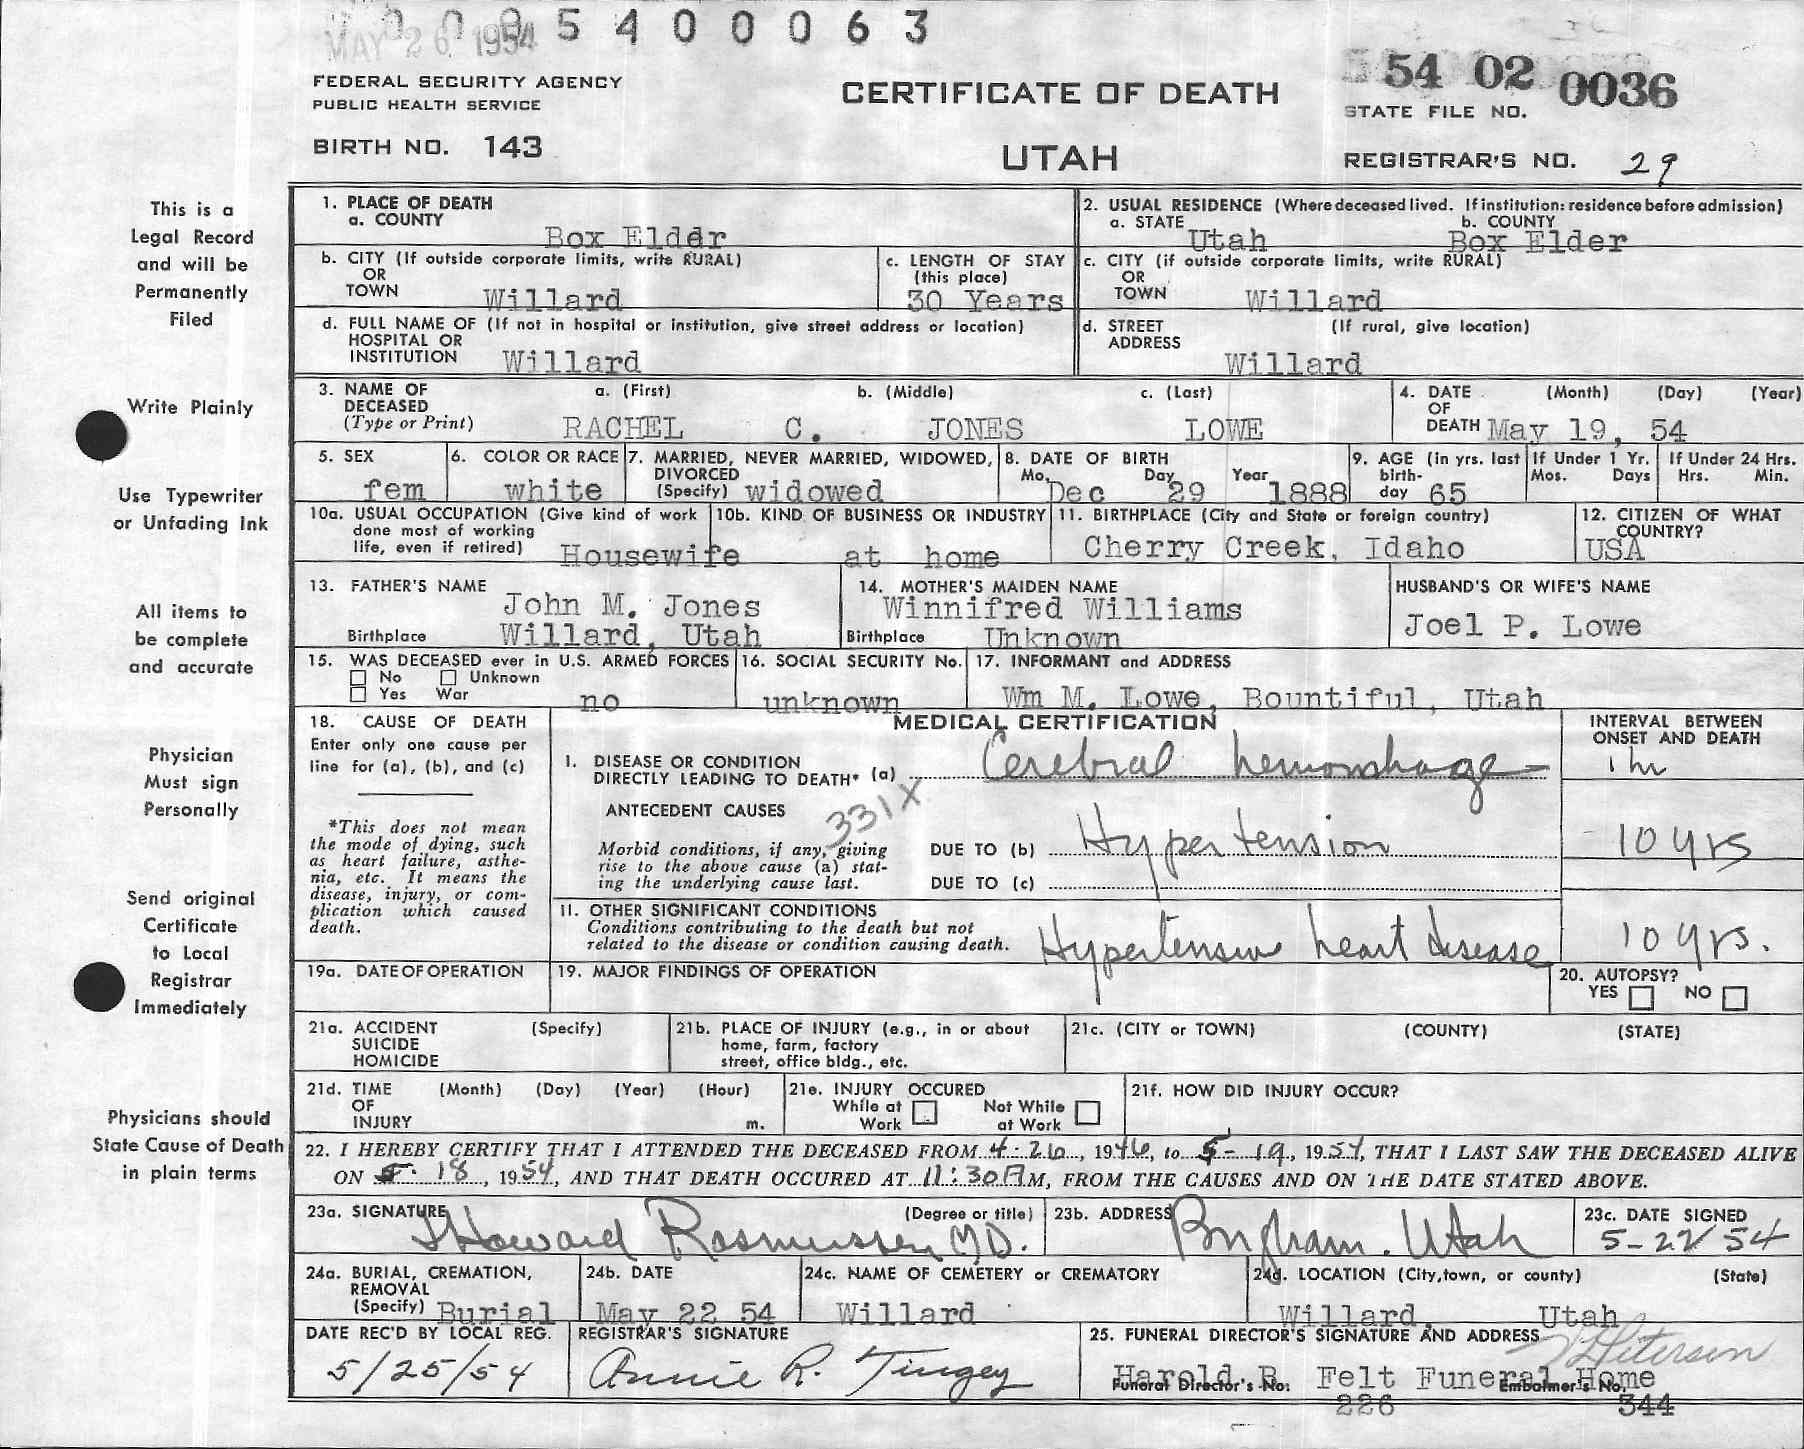 MAY 26 1954 0 0 0 5 4 0 0 0 6 3
FEDERAL SECURITY AGENCY
PUBLIC HEALTH SERVICE
BIRTH NO. 143
CERTIFICATE OF DEATH
UTAH
54 02 0036
STATE FILE NO.
REGISTRAR'S NO. 29
This is a
Legal Record
and will be
Permanently
Filed
Write Plainly
Use Typewriter
or Unfading Ink
All items to
be complete
and accurate
Physician
Must sign
Personally
Send original
Certificate
to Local
Registrar
Immediately
Physicians should
State Cause of Death
in plain terms
1. PLACE OF DEATH
a. COUNTY
Box Elder
2. USUAL RESIDENCE (Where deceased lived. If institution: residence before admission)
a. STATE b. COUNTY
Utah Box Elder
b. CITY (If outside corporate limits, write RURAL)
OR
TOWN Willard
c. LENGTH OF STAY
(this place)
30 Years
c. CITY (if outside corporate limits, write RURAL)
OR
TOWN Willard
d. FULL NAME OF (If not in hospital or institution, give street address or location)
HOSPITAL OR
INSTITUTION Willard
d. STREET (If rural, give location)
ADDRESS
Willard
3. NAME OF a. (First) b. (Middle) c. (Last)
DECEASED
(Type or Print) RACHEL C. JONES LOWE
4. DATE (Month) (Day) (Year)
OF
DEATH May 19, 54
5. SEX
fem
6. COLOR OR RACE
white
7. MARRIED, NEVER MARRIED, WIDOWED,
DIVORCED
(Specify) widowed
8. DATE OF BIRTH
Mo. Day Year
Dec 29 1888
9. AGE (in yrs. last
birth-
day 65
If Under 1 Yr.
Mos. Days
If Under 24 Hrs.
Hrs. Min.
10a. USUAL OCCUPATION (Give kind of work
done most of working
life, even if retired) Housewife
10b. KIND OF BUSINESS OR INDUSTRY
at home
11. BIRTHPLACE (City and State or foreign country)
Cherry Creek, Idaho
12. CITIZEN OF WHAT
COUNTRY?
USA
13. FATHER'S NAME
John M. Jones
Birthplace Willard, Utah
14. MOTHER'S MAIDEN NAME
Winnifred Williams
Birthplace Unknown
HUSBAND'S OR WIFE'S NAME
Joel P. Lowe
15. WAS DECEASED ever in U.S. ARMED FORCES
No Unknown
Yes War no
16. SOCIAL SECURITY No.
unknown
17. INFORMANT and ADDRESS
Wm M. Lowe, Bountiful, Utah
18. CAUSE OF DEATH
Enter only one cause per
line for (a), (b), and (c)
*This does not mean
the mode of dying, such
as heart failure, asthe-
nia, etc. It means the
disease, injury, or com-
plication which caused
death.
MEDICAL CERTIFICATION
INTERVAL BETWEEN
ONSET AND DEATH
1. DISEASE OR CONDITION
DIRECTLY LEADING TO DEATH* (a) Cerebral hemorrhage 1 hr
ANTECEDENT CAUSES
331X
Morbid conditions, if any, giving
rise to the above cause (a) stat-
ing the underlying cause last.
DUE TO (b) Hypertension 10 yrs
DUE TO (c)
11. OTHER SIGNIFICANT CONDITIONS
Conditions contributing to the death but not
related to the disease or condition causing death.
Hypertensive heart disease 10 yrs.
19a. DATE OF OPERATION
19. MAJOR FINDINGS OF OPERATION
20. AUTOPSY?
YES NO
21a. ACCIDENT (Specify)
SUICIDE
HOMICIDE
21b. PLACE OF INJURY (e.g., in or about
home, farm, factory
street, office bldg., etc.
21c. (CITY or TOWN) (COUNTY) (STATE)
21d. TIME (Month) (Day) (Year) (Hour)
OF
INJURY m.
21e. INJURY OCCURED
While at Not While
Work at Work
21f. HOW DID INJURY OCCUR?
22. I HEREBY CERTIFY THAT I ATTENDED THE DECEASED FROM 4-26, 1946, to 5-19, 1954, THAT I LAST SAW THE DECEASED ALIVE
ON 5-18, 1954, AND THAT DEATH OCCURED AT 11:30 A M, FROM THE CAUSES AND ON THE DATE STATED ABOVE.
23a. SIGNATURE (Degree or title)
Howard Rasmussen M.D.
23b. ADDRESS
Brigham. Utah
23c. DATE SIGNED
5-22 54
24a. BURIAL, CREMATION,
REMOVAL
(Specify) Burial
24b. DATE
May 22 54
24c. NAME OF CEMETERY or CREMATORY
Willard
24d. LOCATION (City, town, or county) (State)
Willard, Utah
DATE REC'D BY LOCAL REG.
5/25/54
REGISTRAR'S SIGNATURE
Annie R. Tingey
25. FUNERAL DIRECTOR'S SIGNATURE AND ADDRESS
Peterson
Harold B. Felt Funeral Home
Funeral Director's No. Embalmer's No.
226 344